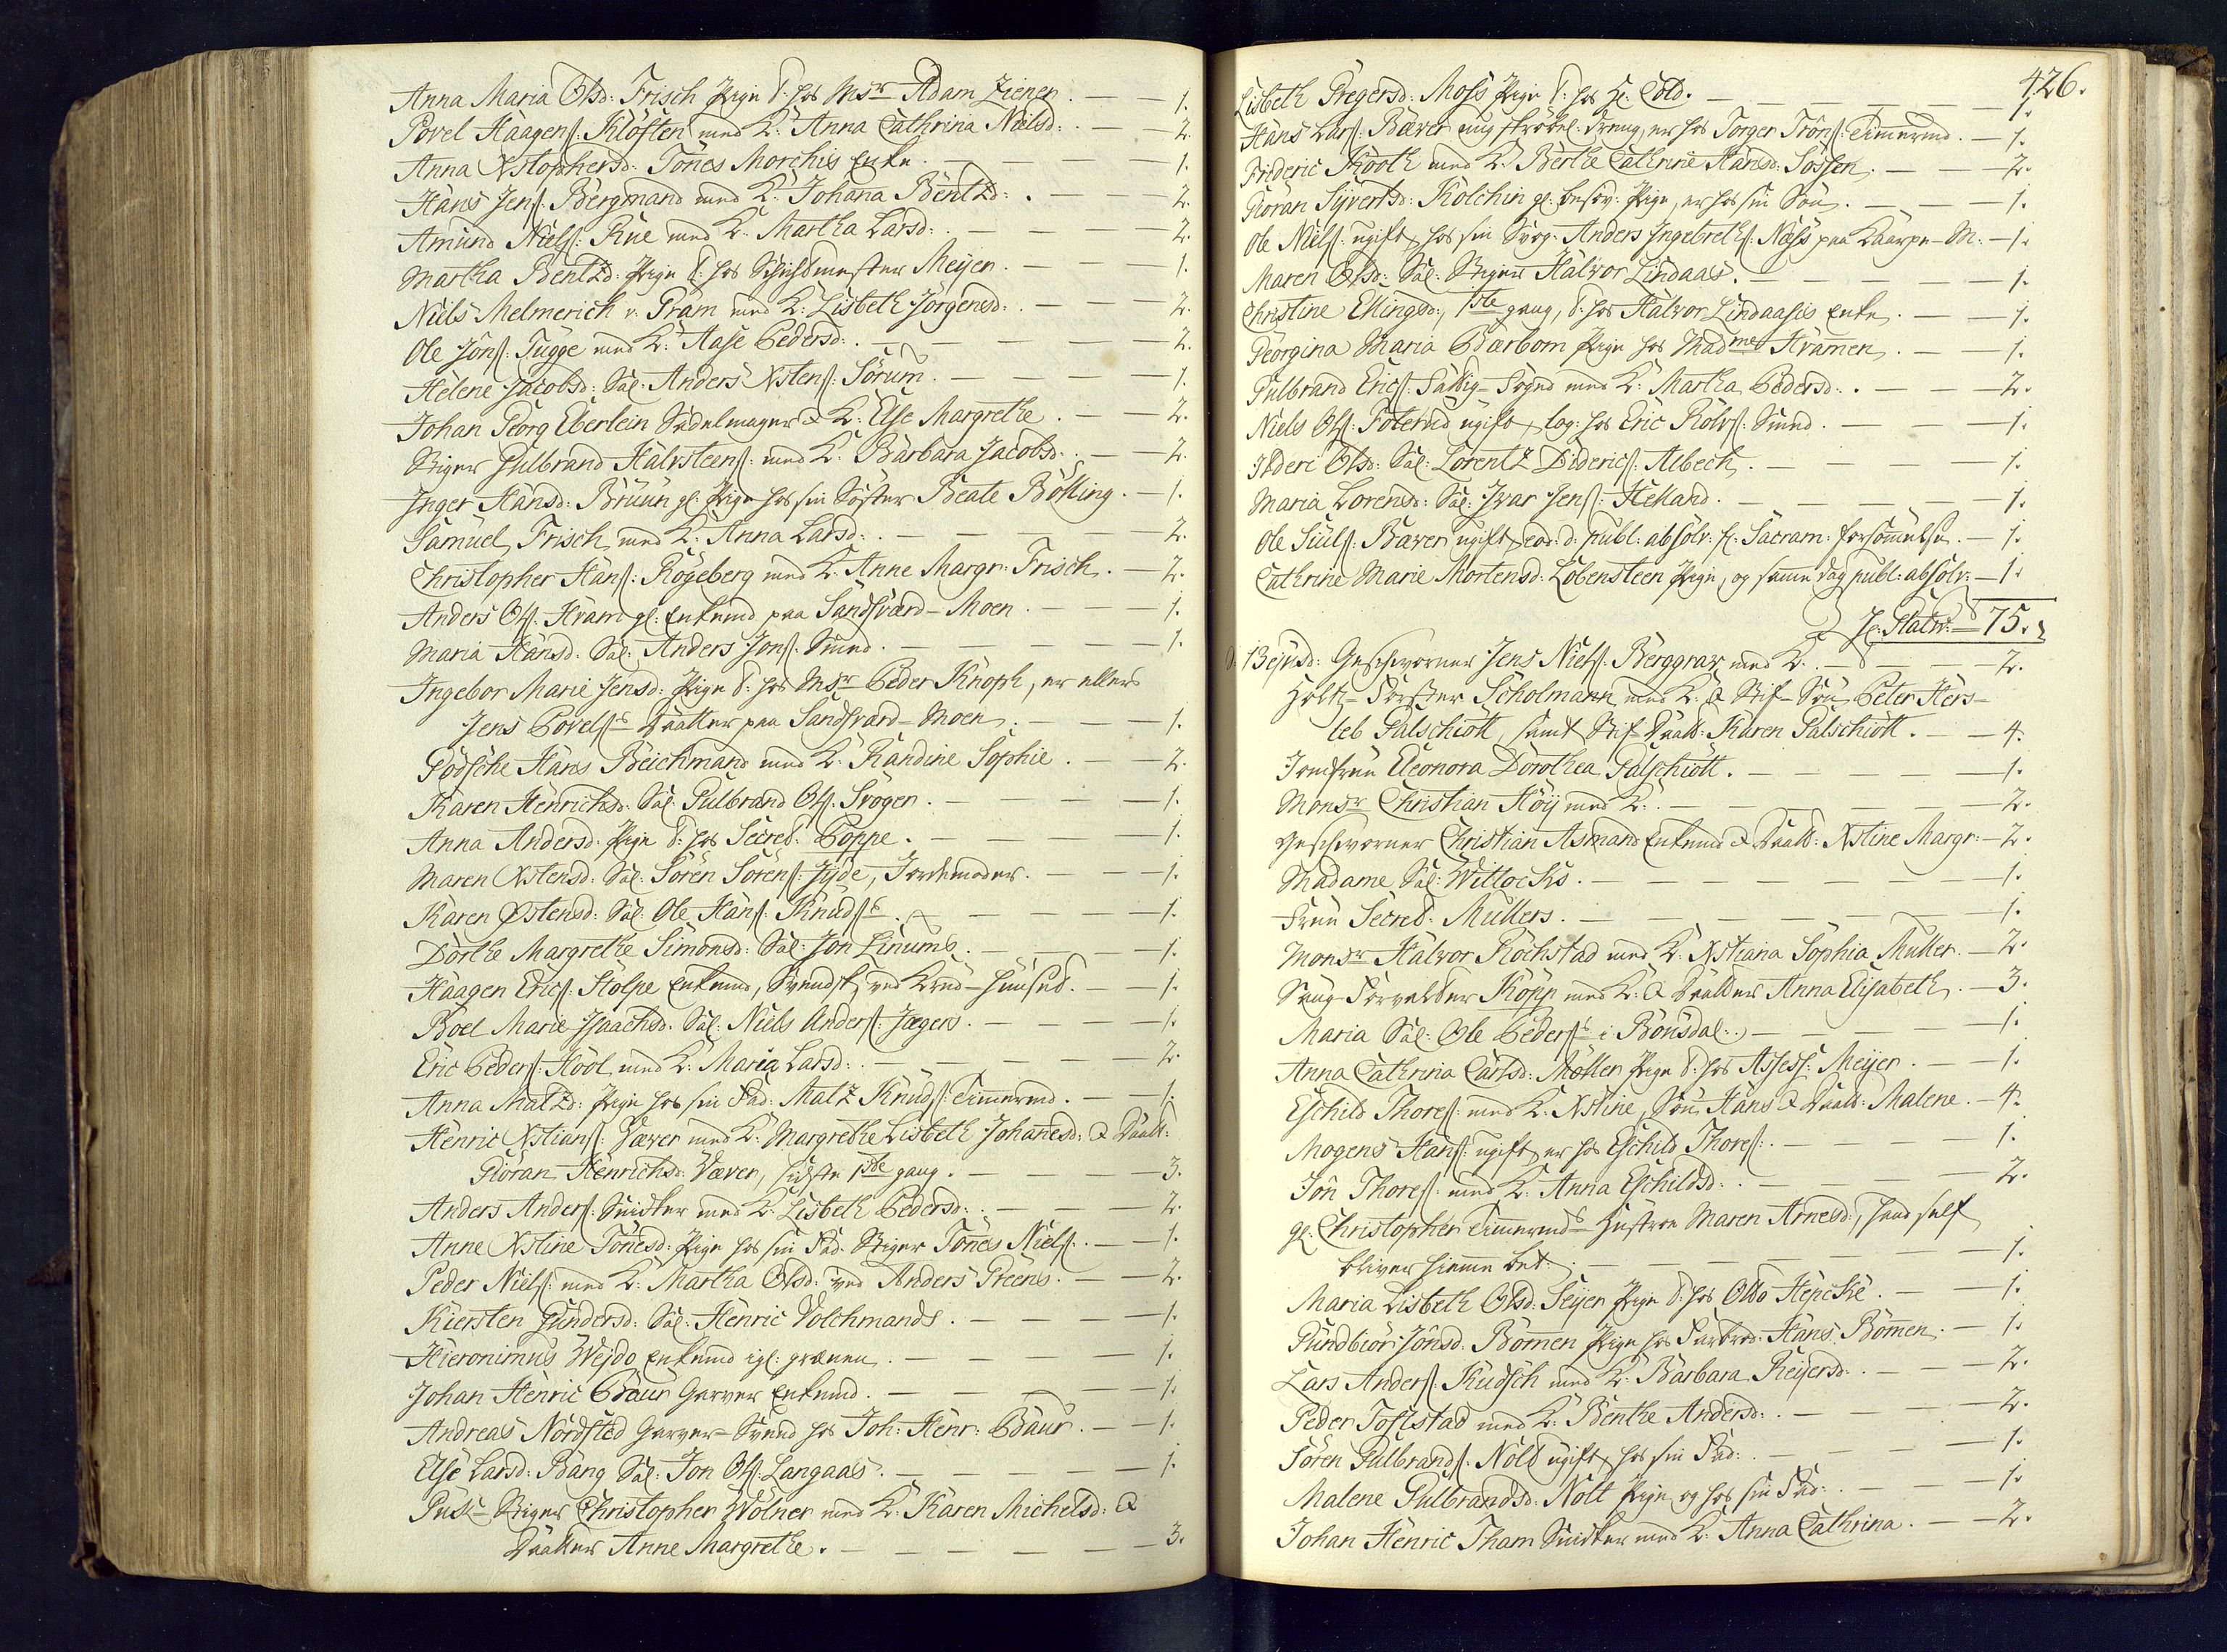 Anna Maria Olsd: Frisch Pige t: hos Msr Adam Ziener. — 1.
Povel Haagens: Klöften med K: Anna Cathrina Nielsd: — 2.
Anna Xstophersd: Tönes Morchis Enke. — 1.
Hans Jens: Bergmand med K: Johana Bentzd: — 2.
Amund Niels: Rue med K: Martha Larsd: — 2.
Martha Bentzd: Pige t: hos Meyer. — 1.
Niels Melmerich v. Pram med K: Lisbeth Jörgensd: — 2.
Ole Jöns: Tugge med K: Aase Pedersd: — 2.
Helene Jacobsd: Sal: Anders Xstens: Sörum. — 1.
Johan Georg Eberlein Sadelmager & K: Else Margrethe. — 2.
Stiger Gulbrand Halvsteens: med K: Barbara Jacobsd: — 2.
Inger Hansd: Bruun gl: Pige hos sin Söster Beate Bölling. — 1.
Samuel Frisch med K: Anna Larsd: — 2.
Christopher Hans: Rögeberg med K: Anne Margr: Frisch. — 2.
Anders Ols: Hvam gl: Enkemd paa Sandsværd-Moen. — 1.
Maria Hansd: Sal: Anders Jons: Smed. — 1.
Ingebor Marie Jensd: Pige t: hos Msr Peder Knoph, er ellers
Jens Povels: Daatter paa Sandsværd-Moen. — 1.
Gödsche Hans Beichmand med K: Randine Sophie. — 2.
Karen Henrichsd: Sal: Gulbrand Ols: Svogen. — 1.
Anna Andersd: Pige t: hos Secret: Poppe. — 1.
Maren Xstensd: Sal: Sören Sörens: Jyde, Jordemoder. — 1.
Karen Østensd: Sal: Ole Hans: Knuds: — 1.
Dorthe Margrethe Simonsd: Sal: Jon Linums. — 1.
Haagen Erics: Stolpe Enkemd, ved Krud-Huuset. — 1.
Boel Marie Isaachsd: Sal: Niels Anders: Jægers. — 1.
Eric Peders: Hool med K: Maria Larsd: — 2.
Anna Matzd: Pige hos sin Fad: Matz Knuds: Timermd. — 1.
Henric Xstians: Væver med K: Margrethe Lisbeth Johanesd: & Daatt:
Giöran Henrichsd: Væver, sidste 1ste gang. — 3.
Anders Anders: Snidker med K: Lisbeth Pedersd: — 2.
Anne Xstine Tönesd: Pige hos sin Fad: Stiger Tönes Niels: — 1.
Peder Niels: med K: Martha Olsd: ved Anders Greens. — 2.
Kiersten Gundersd: Sal: Henric Volchmands. — 1.
Hieronimus Weydo Enkemd igl: grænen. — 1.
Johan Henric Baur Garver Enkemd. — 1.
Andreas Nordsted Garver-Svend hos Joh: Henr: Baur. — 1.
Else Larsd: Bang Sal: Jon Ols: Langaas. — 1.
Puk-Stiger Christopher Wölner med K: Karen Michelsd: &
Daatter Anne Margrethe. — 3.
426.
Lisbeth Gregersd: Moss Pige t: hos Hr: Cold. — 1.
Hans Lars: Bæver ung dreng, er hos Torger Tröns: Timermd. — 1.
Frideric Kooth med K: Berthe Cathrine Hansd: Sossen. — 2.
Göran Syvertsd: Kolchin gl: Pige, er hos sin Sön. — 1.
Ole Niels: ugift, hos sin Svog: Anders Ingebreths: Næss paa — 1.
Maren Olsd: Sal: Stiger Halvor Lindaas. — 1.
Christine Ellingsd:, 1ste gang, t: hos Halvor Lindaasis Enke. — 1.
Georgina Maria Bdærbom Pige hos Madme Hvamen. — 1.
Gulbrand Erics: Fattig-Foged med K: Martha Pedersd: — 2.
Niels Ols: Poterud ugift, log: hos Eric Rolvs: Smed. — 1.
Ideri Olsd: Sal: Lorentz Diderics: Albech. — 1.
Maria Lorensd: Sal: Ivar Jens: Helland. — 1.
Ole Juuls: Bæver ugift, eod: d: publ: absolv: f: Sacram: forsömmelse. — 1.
Cathrine Marie Mortensd: Löbensteen Pige, og samme dag publ: absolv: — 1.
75.
Geschworner Jens Niels: Berggrav med K: — 2.
Holtz-Förster Scholmann med K: & Stif-Sön Peter Hers-
leb Galschiött, samt Stif Daatt: Karen Galschiött. — 4.
Jomfrue Eleonora Dorothea Galschiött. — 1.
Monsr Christian Höij med K: — 2.
Geschworner Christian Asmand Enkemd & Daatt: Xstine Margr: — 2.
Madame Sal: Wittochs. — 1.
Frue Secret: Mullers. — 1.
Monsr Halvor Röchstad med K: Xstiana Sophia Muller. — 2.
Saug-Forvalter Köpp med K: & Daatter Anna Elisabeth. — 3.
Maria Sal: Ole Peders: i Bonsdal. — 1.
Anna Cathrina Carlsd: Möller Pige t: hos Assess: Meyer. — 1.
Eschild Thores: med K: Xstine, Sön Hans & Daatt: Malene. — 4.
Mogens Hans: ugift, er hos Eschild Thores: — 1.
Jon Thores: med K: Anna Eschildsd: — 2.
gl: Christopher Timermds Hustroe Maren Arnesd:, hand self
bliver hiemme bet: — 1.
Maria Lisbeth Olsd: Seyer Pige t: hos Otto Hencke. — 1.
Gundbior Jönsd: Bömen Pige hos Farbrod: Hans Bömen. — 1.
Lars Anders: Kudsch med K: Barbara Reyersd: — 2.
Peder Toftstad med K: Benthe Andersd: — 2.
Sören Gulbrands: Nolt ugift, hos sin Fad: — 1.
Malene Gulbrandsd: Nolt Pige, og hos sin Fad: — 1.
Johan Henric Tham Snidker med K: Anna Cathrina. — 2.